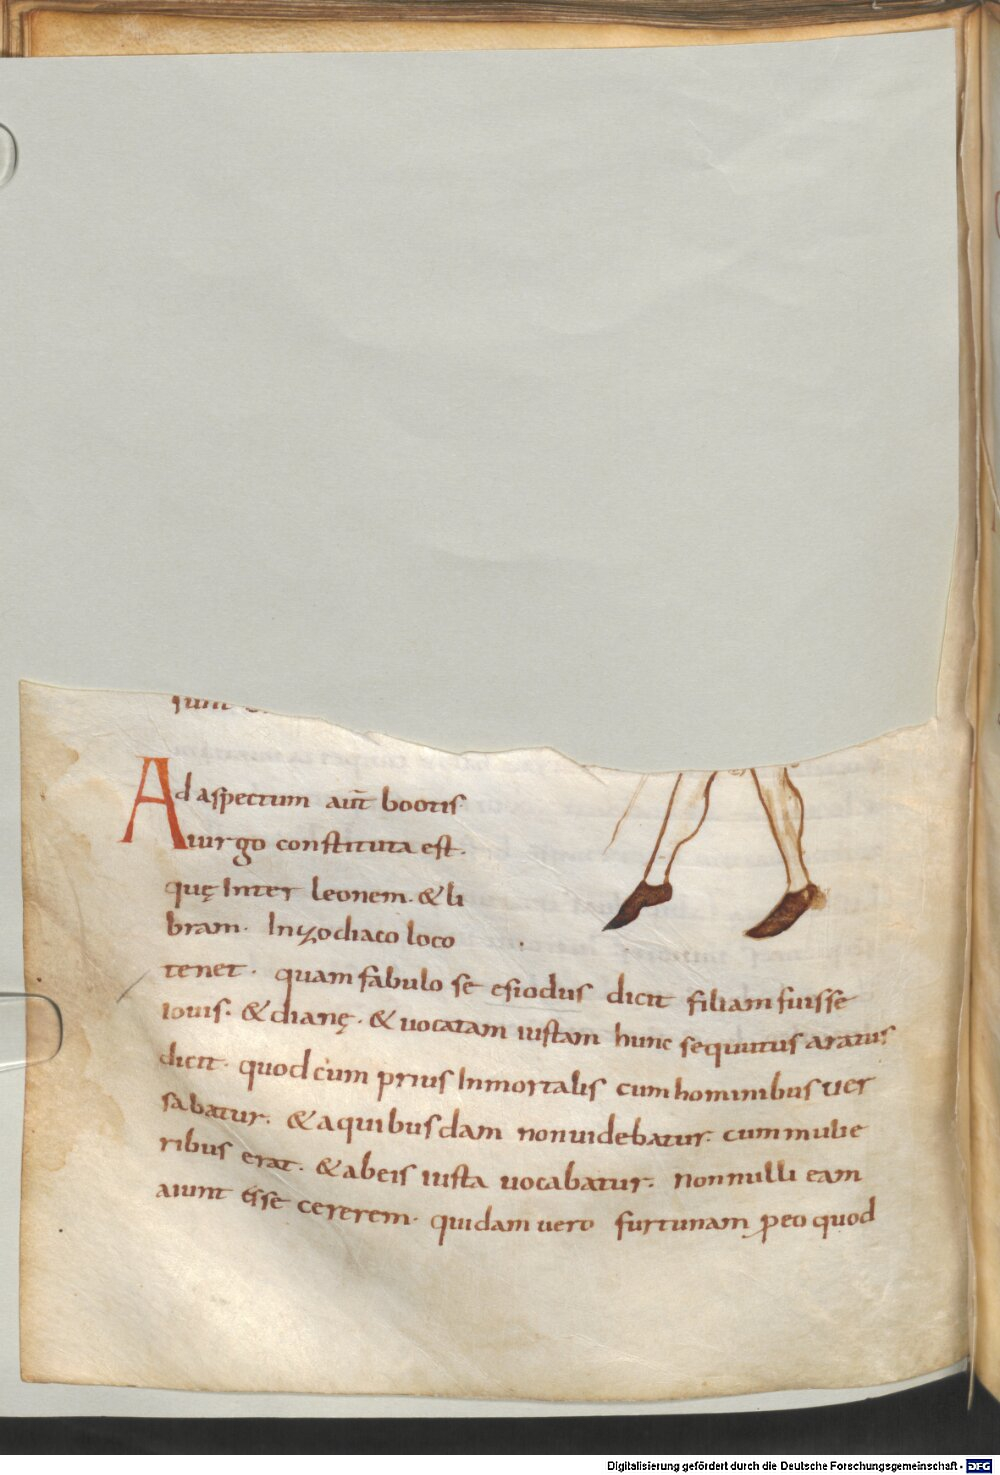 sunt
Ad aspectum aut̄ bootis
uurgo constituta est.
quę Inter leonem. & li
bram. Inzodiaco loco
tenet. quam fabulo se esiodus dicit filiam fuisse
iouis. & dianę. & uocatam iustam hunc sequutus aratus
dicit. quod cum prius Inmortalis cum hominibus uer
sabatur. & a quibusdam non uidebatur. cum mulie
ribus erat. & ab eis iusta uocabatur. Non nulli eam
aiunt esse cererem. quidam uero furtunam ꝓeo quod
Digitalisierung gefördert durch die Deutsche Forschungsgemeinschaft - DFG